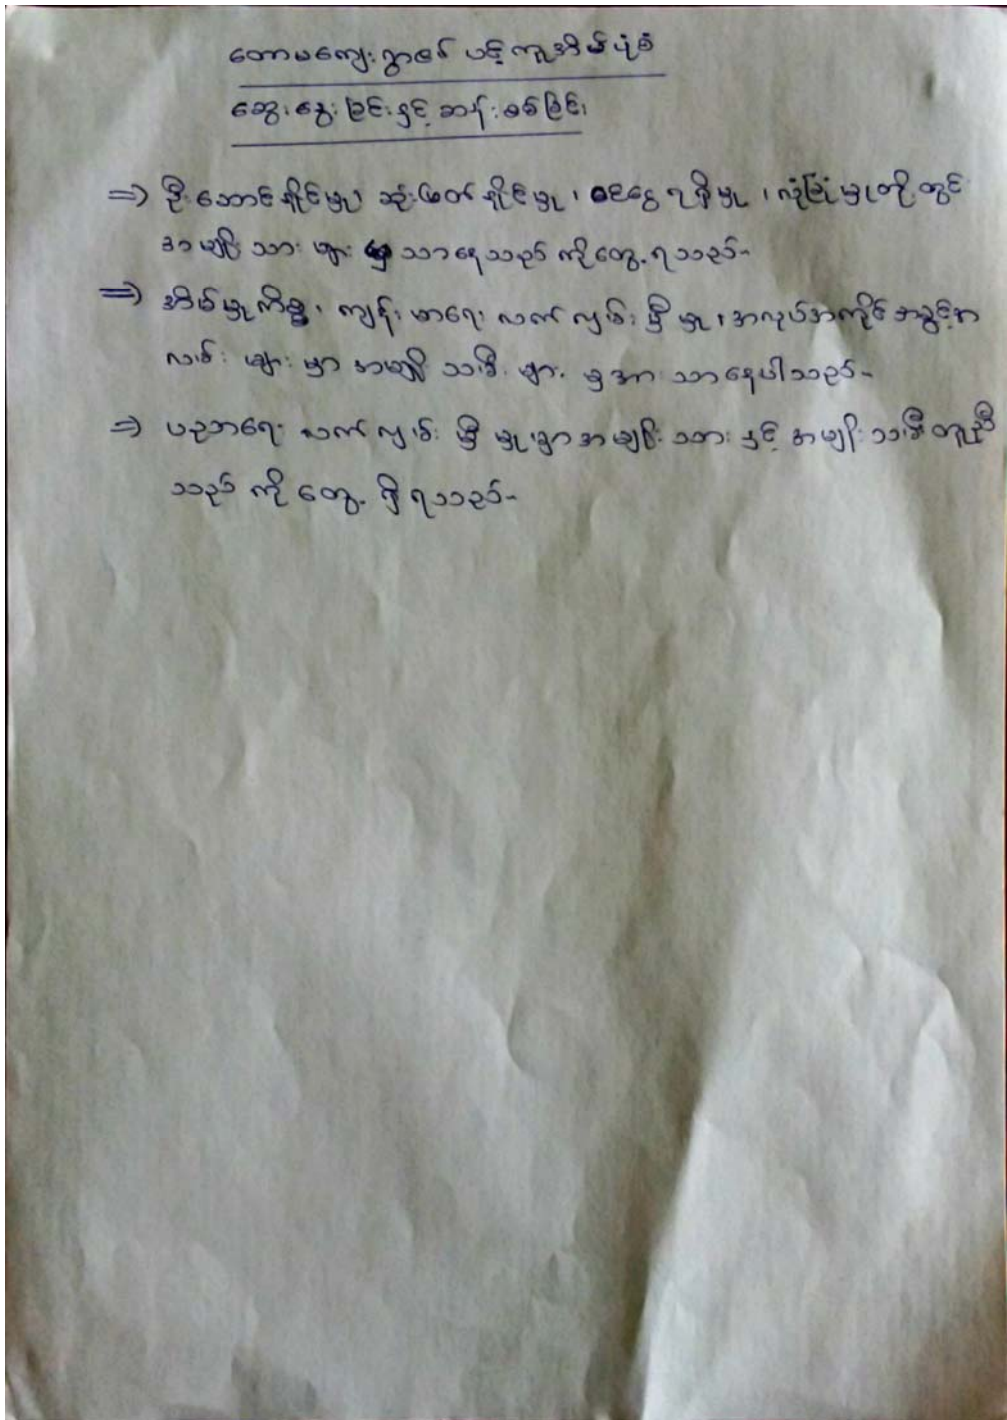 တောမကျေးရွာ၏ ပင့်ကူအိမ်ပုံစံ
ဆွေးနွေးခြင်းနှင့် ဆန်းစစ်ခြင်း
⇒ ဦးဆောင်နိုင်မှု၊ ဆုံးဖြတ်နိုင်မှု၊ ငွေရရှိမှု၊ လုံခြုံမှုတို့တွင်
အမျိုးသားများမှ သာနေသည်ကိုတွေ့ရသည်-
⇒ အိမ်မှုကိစ္စ၊ ကျန်းမာရေး လက်လှမ်းမှီမှု၊ အလုပ်အကိုင်အခွင့်အ
လမ်းများမှာ အမျိုးသမီးများမှ အားသာနေပါသည်-
⇒ ပညာရေး လက်လှမ်းမှီမှုမှာ အမျိုးသားနှင့် အမျိုးသမီးတူညီ
သည်ကိုတွေ့ရှိရသည်-